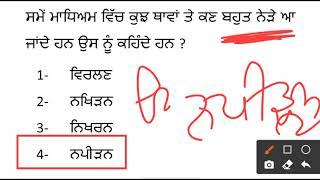 ਸਮੇਂ ਮਾਧਿਅਮ ਵਿੱਚ ਕੁਝ ਥਾਵਾਂ ਤੇ ਕਣ ਬਹੁਤ ਨੇੜੇ ਆ
ਜਾਂਦੇ ਹਨ ਉਸ ਨੂੰ ਕਹਿੰਦੇ ਹਨ ?
1- ਵਿਰਲਣ
2- ਨਖਿੜਨ
3- ਨਿਖਰਨ
4- ਨਪੀੜਨ
ਨਪੀੜਨ